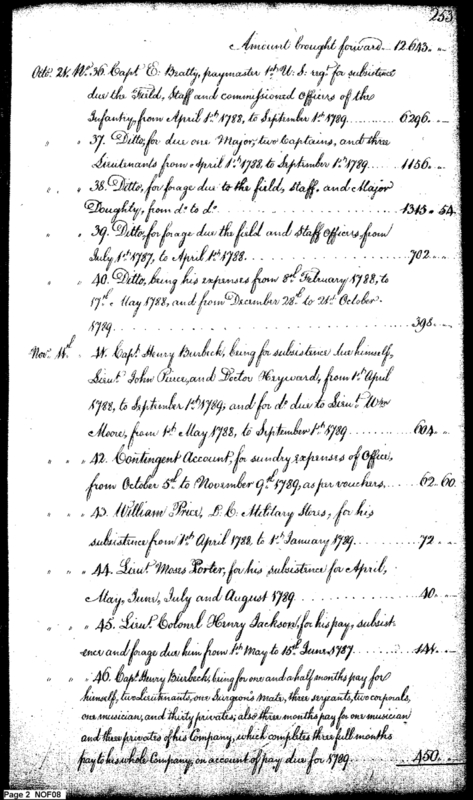 253
Amount brought forward 12643. „
Octr. 21. No. 36. Capt. E. Beatty, paymaster 1st U. S. regt. for subsistence
due the Field, Staff and commissioned Officers of the
Infantry, from April 1st 1788, to September 1st 1789 6296. „
„ „ 37. Ditto, for due one Major, two Captains, and three
Lieutenants from April 1st 1788, to September 1st 1789 1156. „
„ „ 38. Ditto, for forage due to the field, staff, and Major
Doughty, from do. to do. 1313. 54
„ „ 39. Ditto, for forage due the field and Staff Officers, from
July 1st 1787, to April 1st 1788 702. „
„ „ 40. Ditto, being his expenses from 8th February 1788, to
17th May 1788, and from December 28th to 21st October
1789 398. „
Novr. 14th „ 41. Capt. Henry Burbeck, being for subsistence due himself,
Lieut. John Peirce, and Doctor Heyward, from 1st April
1788, to September 1st 1789; and for do. due to Lieut. Wm.
Moore, from 1st May 1788, to September 1st 1789 604. „
„ „ „ 42. Contingent Account, for sundry expenses of Office,
from October 5th to November 9th 1789, as per vouchers 62. 60.
„ „ „ 43. William Price, D. C. Military Stores, for his
subsistence from 1st April 1788 to 1st January 1789 72. „
„ „ „ 44. Lieut. Moses Porter, for his subsistence for April,
May, June, July and August 1789 40. „
„ „ „ 45. Lieut. Colonel Henry Jackson, for his pay, subsist
ence and forage due him from 1st May to 15th June 1787 144. „
„ „ „ 46. Capt. Henry Burbeck, being for one and a half months pay for
himself, two Lieutenants, one Surgeon's Mate, three serjeants, two corporals,
one musician, and thirty privates; also three months pay for one musician
and three privates of his Company, which completes three full months
pay to his whole Company, on account of pay due for 1789 450. „
Page 2 NOF08